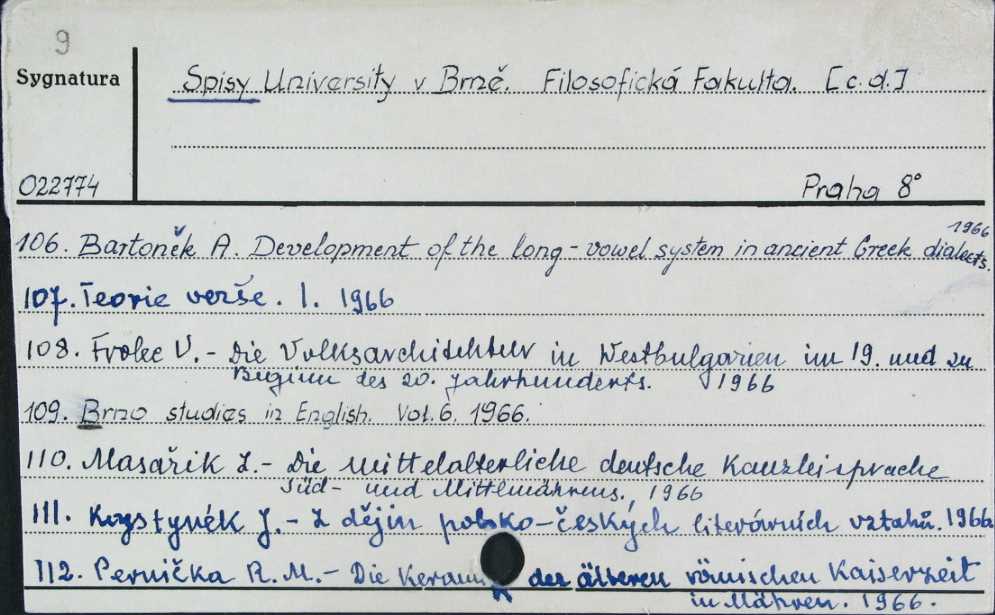 9
Sygnatura
Spisy University v Brně. Filosofická Fakulta. [c.d.]
022774
Praha 8°
106. Bartoněk A. Development of the long-vowel system in ancient Greek dialects. 1966
107. Teorie verše. I. 1966
108. Frolec V. - Die Volksarchitektur in Westbulgarien im 19. und zu
Beginn des 20. Jahrhunderts. 1966
109. Brno studies in English. Vol. 6. 1966.
110. Masařik Z. - Die mittelalterliche deutsche Kanzleisprache
Süd- und Mittelmährens., 1966
111. Krystýnek J. - Z dějin polsko-českých literárních vztahů. 1966
112. Pernička R. M. - Die der älteren römischen Kaiserzeit
in Mähren. 1966.